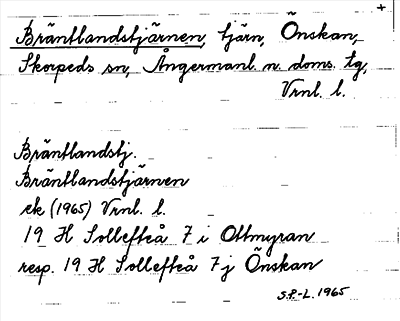 Bräntlandstjärnen, tjärn, Önskan,
Skorpeds sn, Ångermanl. n. doms. tg,
Vrnl. l.
Bräntlandstj.
Bräntlandstjärnen
ek (1965) Vrnl. l.
19 H Sollefteå 7 i Ottmyran
resp. 19 H Sollefteå 7 j Önskan
S.P.-L. 1965